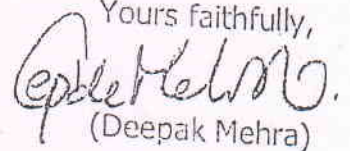 Yours faithfully,
(Deepak Mehra)